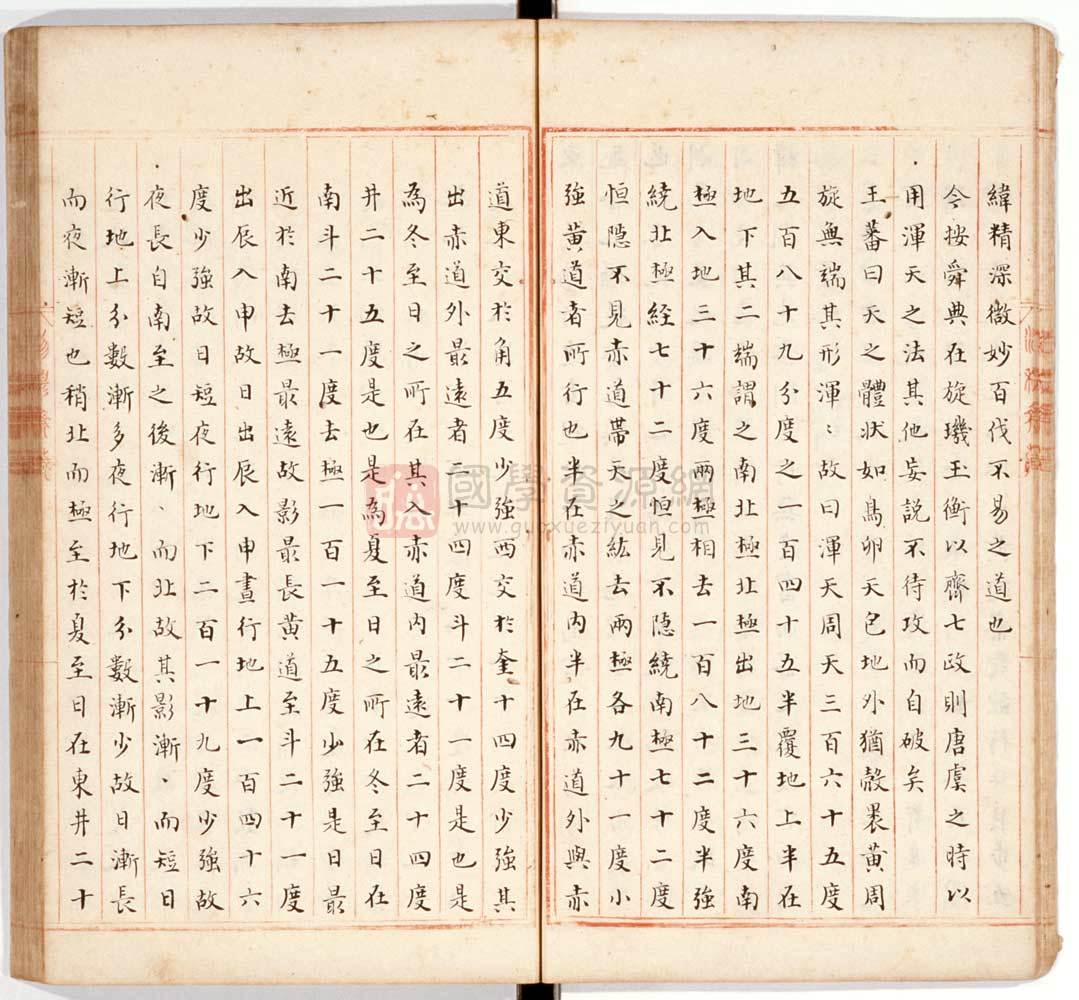 緯精深微妙百伐不易之道也
今按舜典在旋璣玉衡以齊七政則唐虞之時以
用渾天之法其他妄説不待攻而自破矣
王蕃曰天之體狀如鳥卵天包地外猶殼褁黄周
旋無端其形渾〻故曰渾天周天三百六十五度
五百八十九分度之一百四十五半覆地上半在
地下其二端謂之南北極北極出地三十六度南
極入地三十六度兩極相去一百八十二度半強
繞北極経七十二度恒見不隠繞南極七十二度
恒隠不見赤道帯天之紘去兩極各九十一度小
強黄道者所行也半在赤道内半在赤道外與赤
道東交於角五度少強西交於奎十四度少強其
出赤道外最遠者二十四度斗二十一度是也是
為冬至日之所在其入赤道内最遠者二十四度
井二十五度是也是為夏至日之所在冬至日在
南斗二十一度去極一百一十五度少強是日最
近於南去極最遠故影最長黄道至斗二十一度
出辰入申故日出辰入申晝行地上一百四十六
度少強故日短夜行地下二百一十九度少強故
夜長自南至之後漸〻而北故其影漸〻而短日
行地上分數漸多夜行地下分數漸少故日漸長
而夜漸短也稍北而極至於夏至日在東井二十
國學資源網
www.guoxueziyuan.com